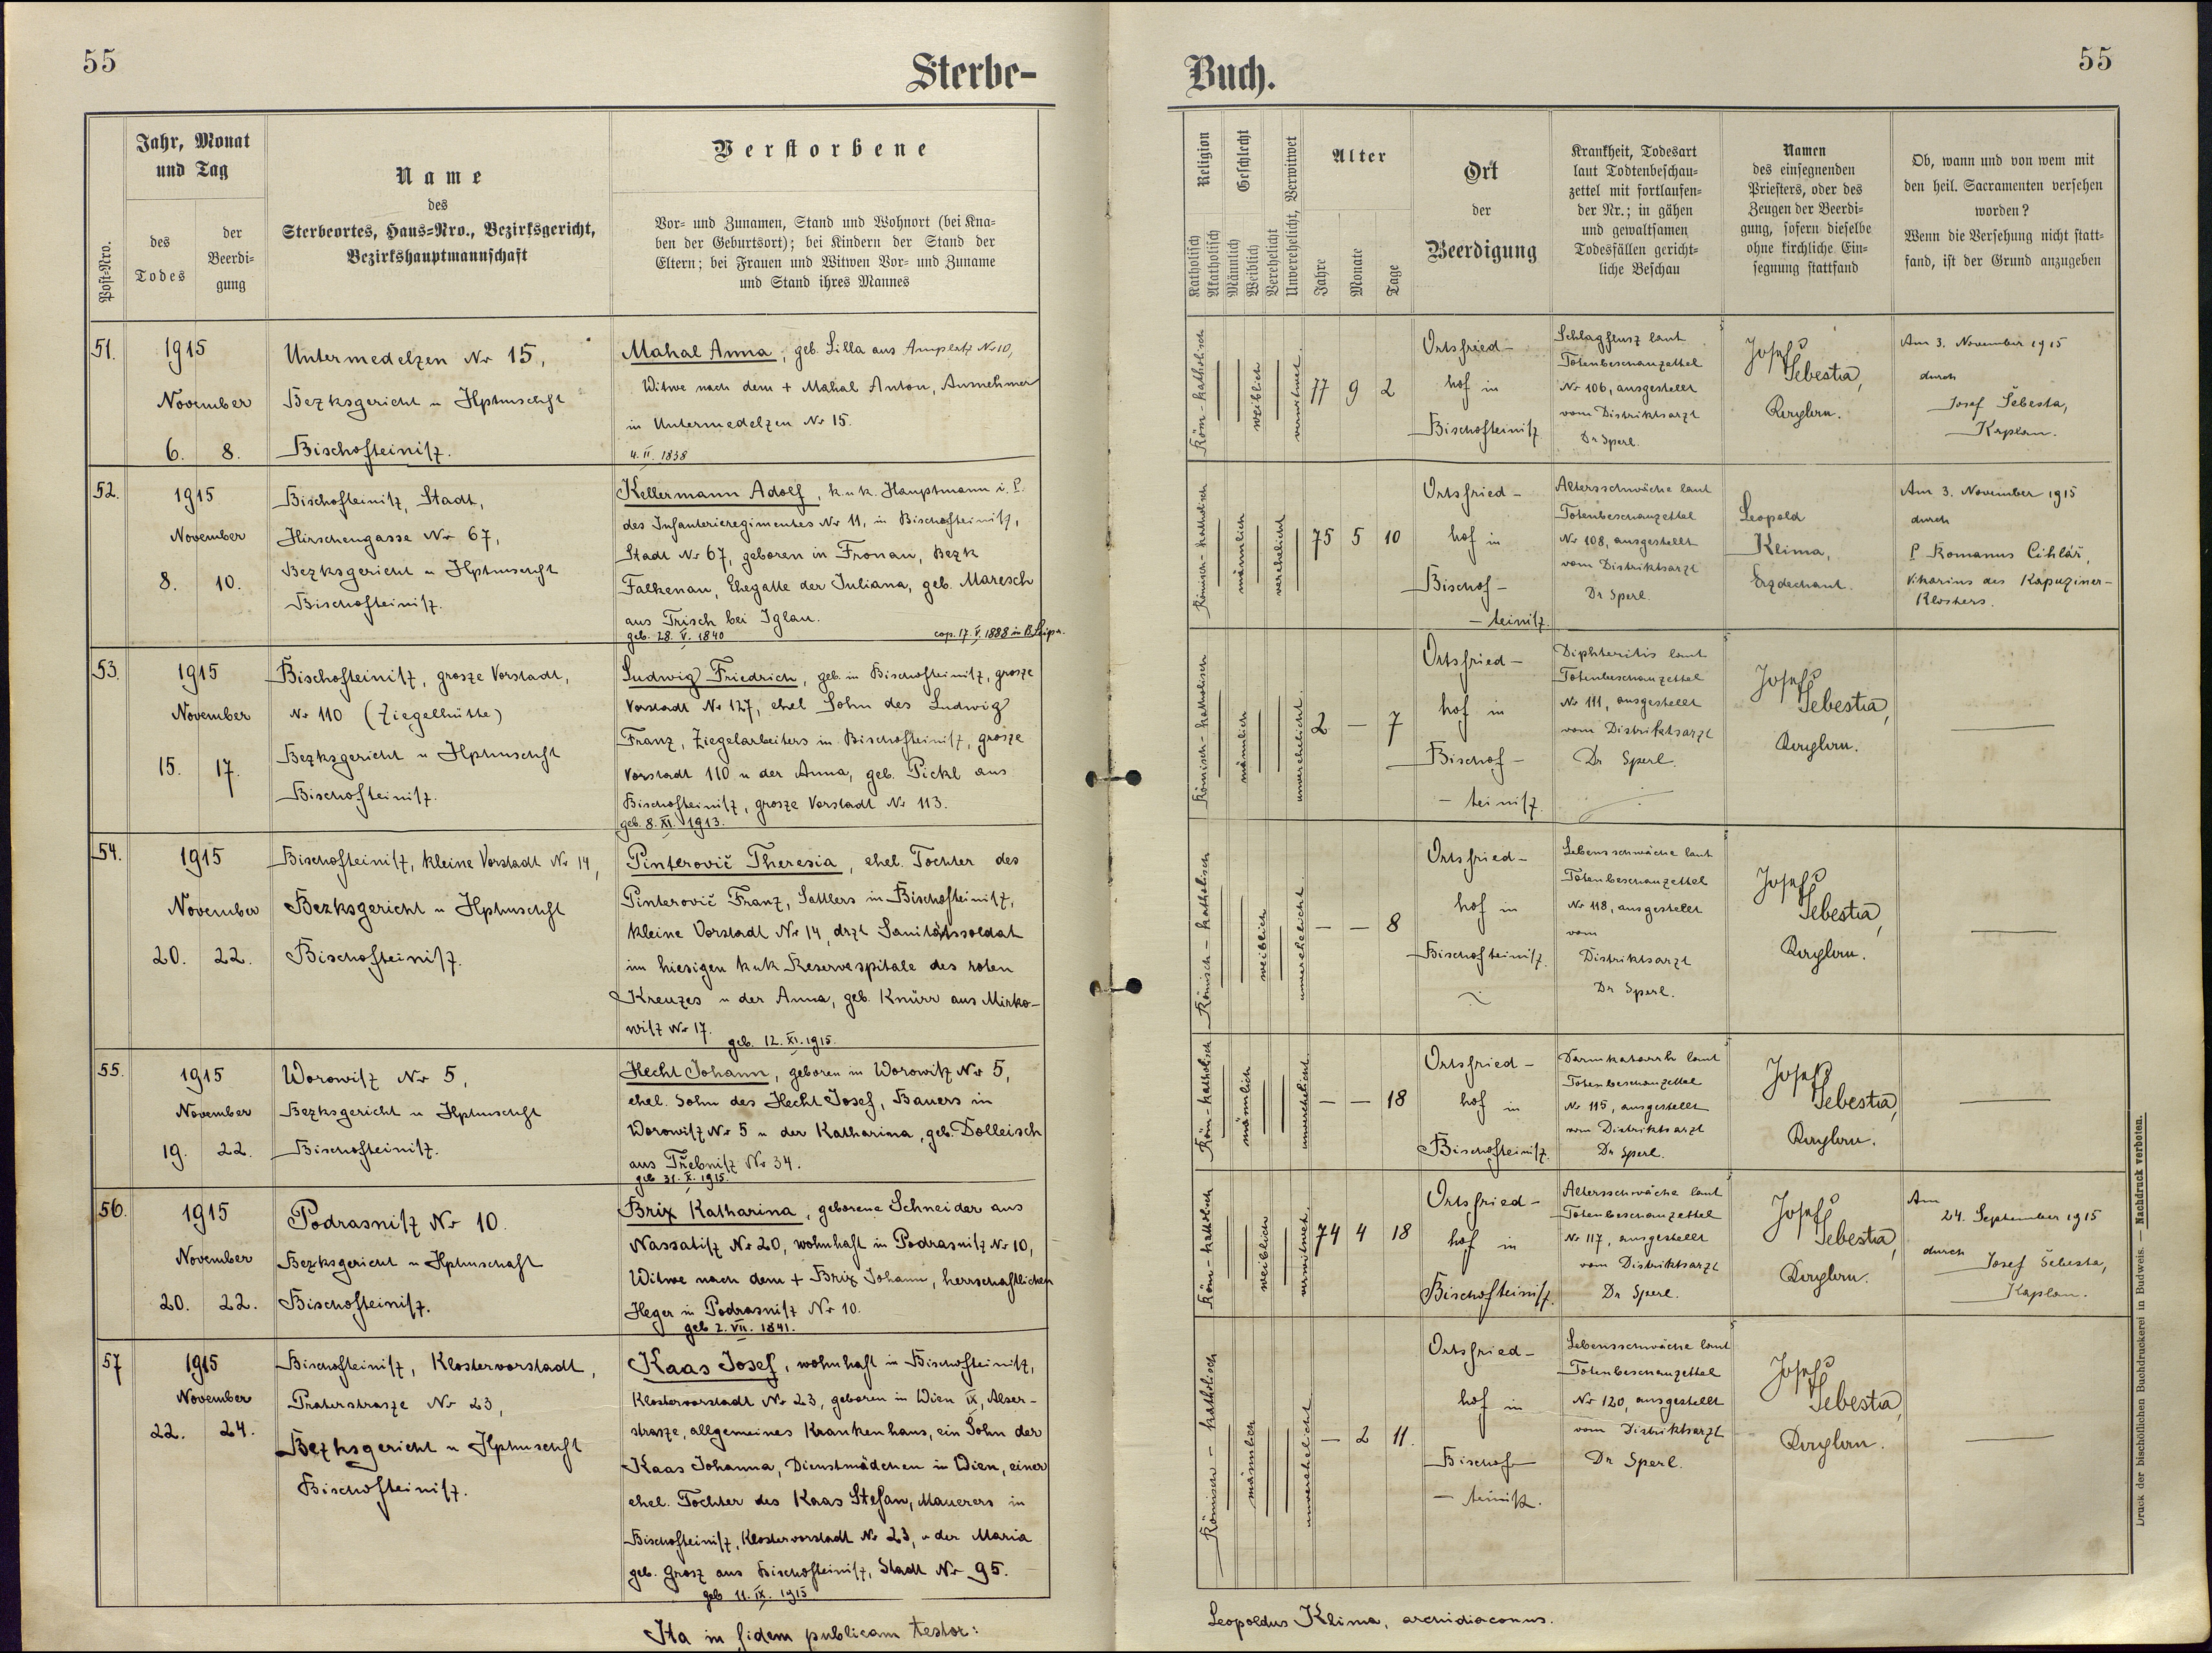 55
Sterbe-
Buch.
55
Post-Nro.
Jahr, Monat
und Tag
des
Todes
der
Beerdi-
gung
Name
des
Sterbeortes, Haus-Nro., Bezirksgericht,
Bezirkshauptmannschaft
Verstorbene
Vor- und Zunamen, Stand und Wohnort (bei Kna-
ben der Geburtsort); bei Kindern der Stand der
Eltern; bei Frauen und Witwen Vor- und Zuname
und Stand ihres Mannes
Religion
Katholisch
Akatholisch
Geschlecht
Männlich
Weiblich
Verehelicht
Unverehelicht, Verwitwet
Alter
Jahre
Monate
Tage
Ort
der
Beerdigung
Krankheit, Todesart
laut Todtenbeschau-
zettel mit fortlaufen-
der Nr.; in gähen
und gewaltsamen
Todesfällen gericht-
liche Beschau
Namen
des einsegnenden
Priesters, oder des
Zeugen der Beerdi-
gung, sofern dieselbe
ohne kirchliche Ein-
segnung stattfand
Ob, wann und von wem mit
den heil. Sacramenten versehen
worden?
Wenn die Versehung nicht statt-
fand, ist der Grund anzugeben
51.
1915
November
6. 8.
Untermedelzen Nr 15,
Bezksgericht u Hptmschft
Bischofteinitz.
Mahal Anna, geb. Lilla aus Amplatz Nr 10,
Witwe nach dem + Mahal Anton, Ausnehmer
in Untermedelzen Nr 15.
4. II. 1838
Röm-katholisch
weiblich
verwitwet.
77 9 2
Ortsfried-
hof in
Bischofteinitz
Schlagflusz laut
Totenbeschauzettel
Nr 106, ausgestellt
vom Distriktsarzt
Dr Sperl.
Josef
Šebesta,
Kaplan.
Am 3. November 1915
durch
Josef Šebesta,
Kaplan.
52.
1915
November
8. 10.
Bischofteinitz, Stadt,
Hirschengasse Nr 67,
Bezksgericht u Hptmschft
Bischofteinitz.
Kellermann Adolf, k.u.k. Hauptmann i. P.
des Infanterieregimentes Nr 11, in Bischofteinitz,
Stadt Nr 67, geboren in Fronau, Bezk
Falkenau, Ehegatte der Juliana, geb. Maresch
aus Trisch bei Iglau.
geb. 28. V. 1840
cop. 17. V. 1888 in B. Leipa.
Römisch-katholisch
männlich
verehelicht
75 5 10
Ortsfried-
hof in
Bischof-
-teinitz.
Altersschwäche laut
Totenbeschauzettel
Nr 108, ausgestellt
vom Distriktsarzt
Dr Sperl.
Leopold
Klima,
Erzdechant.
Am 3. November 1915
durch
P. Romanus Cihlář,
Vikarius des Kapuziner-
Klosters.
53.
1915
November
15. 17.
Bischofteinitz, grosze Vorstadt,
Nr 110 (Ziegelhütte)
Bezksgericht u Hptmschft
Bischofteinitz.
Ludwig Friedrich, geb. in Bischofteinitz, grosze
Vorstadt Nr 127, ehel Sohn des Ludwig
Franz, Ziegelarbeiters in Bischofteinitz, grosze
Vorstadt 110 u der Anna, geb. Pickl aus
Bischofteinitz, grosze Vorstadt Nr 113.
geb. 8. XI. 1913.
Römisch-katholisch
männlich
unverehelicht.
2 — 7
Ortsfried-
hof in
Bischof-
-teinitz.
Diphteritis laut
Totenbeschauzettel
Nr 111, ausgestellt
vom Distriktsarzt
Dr Sperl.
Josef
Šebesta,
Kaplan.
—
54.
1915
November
20. 22.
Bischofteinitz, kleine Vorstadt Nr 14,
Bezksgericht u Hptmschft
Bischofteinitz.
Pinterovič Theresia, ehel. Tochter des
Pinterovič Franz, Sattlers in Bischofteinitz,
kleine Vorstadt Nr 14, drzt Sanitätssoldat
im hiesigen kuk Reservespitale des roten
Kreuzes u der Anna, geb. Knürr aus Mirko-
witz Nr 17.
geb. 12. XI. 1915.
Römisch-katholisch
weiblich
unverehelicht.
— — 8
Ortsfried-
hof in
Bischofteinitz.
Lebensschwäche laut
Totenbeschauzettel
Nr 118, ausgestellt
vom
Distriktsarzt
Dr Sperl.
Josef
Šebesta,
Kaplan.
—
55.
1915
November
19. 22.
Worowitz Nr 5,
Bezksgericht u Hptmschft
Bischofteinitz.
Hecht Johann, geboren in Worowitz Nr 5,
ehel. Sohn des Hecht Josef, Bauers in
Worowitz Nr 5 u der Katharina, geb. Dolleisch
aus Třebnitz Nr 34.
geb 31. X. 1915.
Röm-katholisch
männlich
unverehelicht
— — 18
Ortsfried-
hof in
Bischofteinitz.
Darmkatarrh laut
Totenbeschauzettel
Nr 115, ausgestellt
vom Distriktsarzt
Dr Sperl.
Josef
Šebesta,
Kaplan.
—
56.
1915
November
20. 22.
Podrasnitz Nr 10.
Bezksgericht u Hptmschaft
Bischofteinitz.
Brix Katharina, geborene Schneider aus
Nassatitz Nr 20, wohnhaft in Podrasnitz Nr 10,
Witwe nach dem + Brix Johann, herrschaftlichen
Heger in Podrasnitz Nr 10.
geb 2. VII. 1841.
Röm-katholisch
weiblich
verwitwet.
74 4 18
Ortsfried-
hof in
Bischofteinitz.
Altersschwäche laut
Totenbeschauzettel
Nr 117, ausgestellt
vom Distriktsarzt
Dr Sperl.
Josef
Šebesta,
Kaplan.
Am
24. September 1915
durch Josef Šebesta,
Kaplan.
57
1915
November
22. 24.
Bischofteinitz, Klostervorstadt,
Praterstrasze Nr 23,
Bezksgericht u Hptmschft
Bischofteinitz.
Kaas Josef, wohnhaft in Bischofteinitz,
Klostervorstadt Nr 23, geboren in Wien IX, Alser-
strasze, allgemeines Krankenhaus, ein Sohn der
Kaas Johanna, Dienstmädchen in Wien, einer
ehel. Tochter des Kaas Stefan, Mauerers in
Bischofteinitz, Klostervorstadt Nr 23, u der Maria
geb. Grosz aus Bischofteinitz, Stadt Nr 95.
geb 11. IX. 1915.
Römisch-katholisch
männlich
unverehelicht
— 2 11.
Ortsfried-
hof in
Bischof-
-teinitz.
Lebensschwäche laut
Totenbeschauzettel
Nr 120, ausgestellt
vom Distriktsarzt
Dr Sperl.
Josef
Šebesta,
Kaplan.
—
Ita in fidem publicam testor:
Leopoldus Klima, archidiaconus.
Druck der bischöflichen Buchdruckerei in Budweis. — Nachdruck verboten.